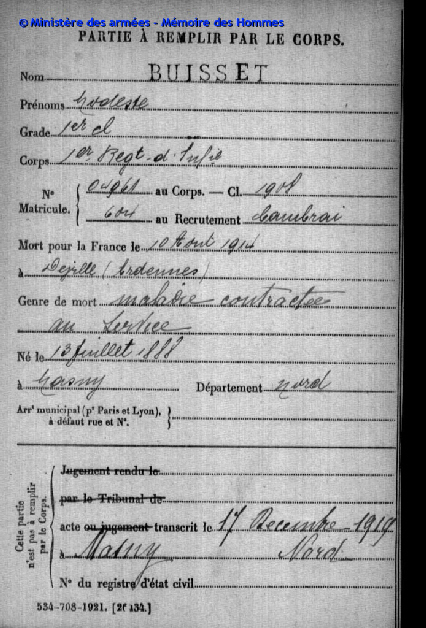 © Ministère des armées - Mémoire des Hommes
PARTIE À REMPLIR PAR LE CORPS.
Nom BUISSET
Prénoms Modeste
Grade 1er cl
Corps 1er Regt d'Infie
N° Matricule. { au Corps. — Cl. 1908
604 au Recrutement Cambrai
Mort pour la France le 10 Aout 1914
à Deville (Ardennes)
Genre de mort maladie contractée
au service
Né le 13 Juillet 1888
à Masny Département Nord
Arrt municipal (pr Paris et Lyon), }
à défaut rue et N°.
Cette partie n'est pas à remplir par le Corps.
Jugement rendu le
par le Tribunal de
acte ou jugement transcrit le 17 Decembre 1919
à Masny Nord
N° du registre d'état civil
534-708-1921. [26434.]